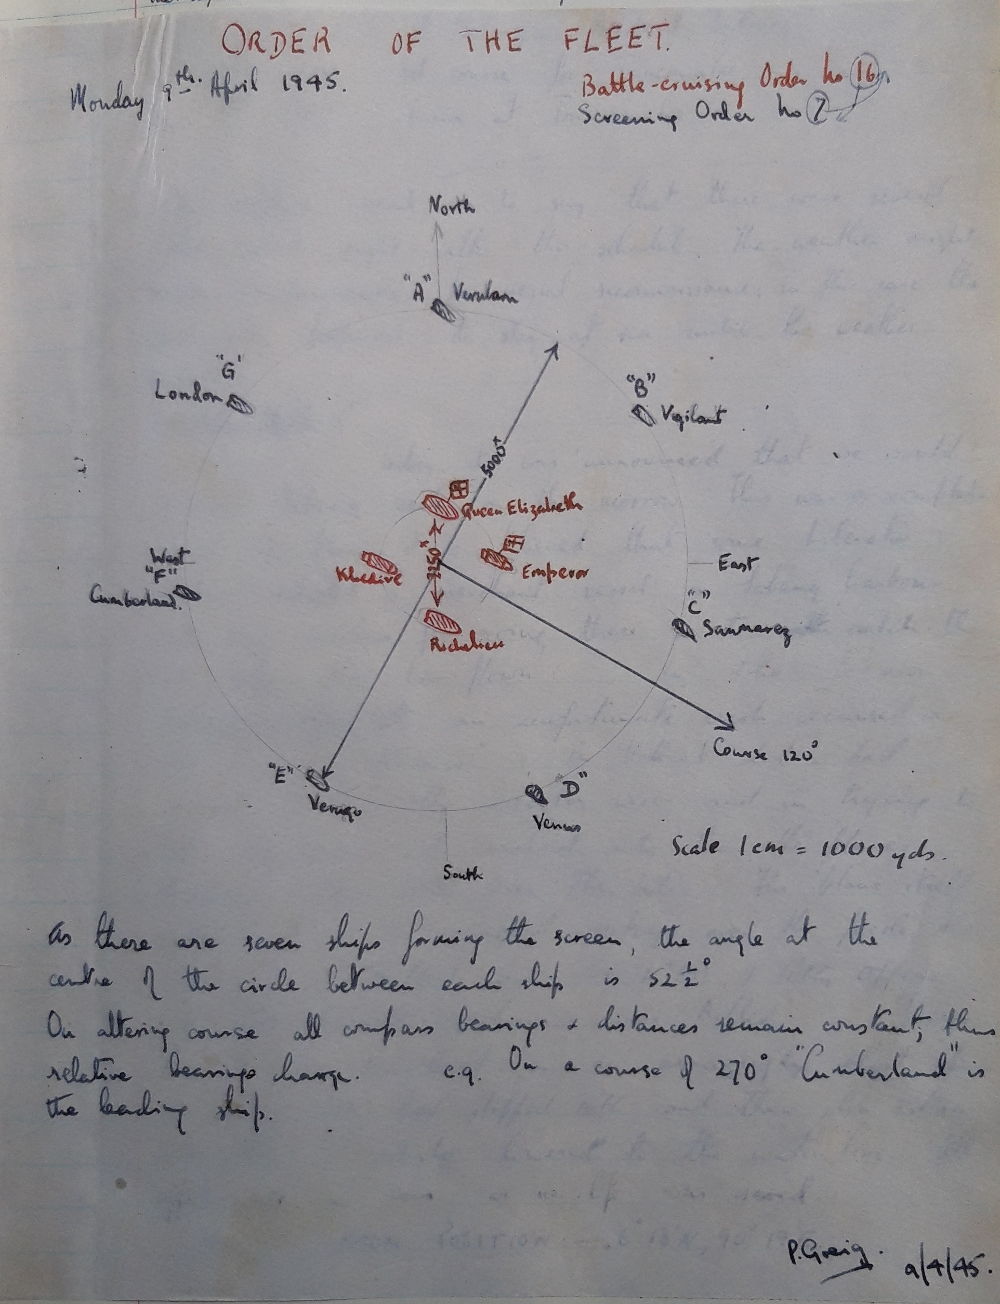 ORDER OF THE FLEET.
Monday 9th. April 1945.
Battle-cruising Order No 16
Screening Order No 7
North
"A" Verulam
"G"
London
"B"
Vigilant
5000x
Queen Elizabeth
West
"F"
Cumberland.
Khedive
Emperor
East
"C"
Saumarez
Richelieu
Course 120°
"E"
Virago
"D"
Venus
Scale 1cm = 1000 yds.
South
As there are seven ships forming the screen, the angle at the
centre of the circle between each ship is 52½°
On altering course all compass bearings & distances remain constant, thus
relative bearings change. e.g. On a course of 270° "Cumberland" is
the leading ship.
P.Greig.
9/4/45.